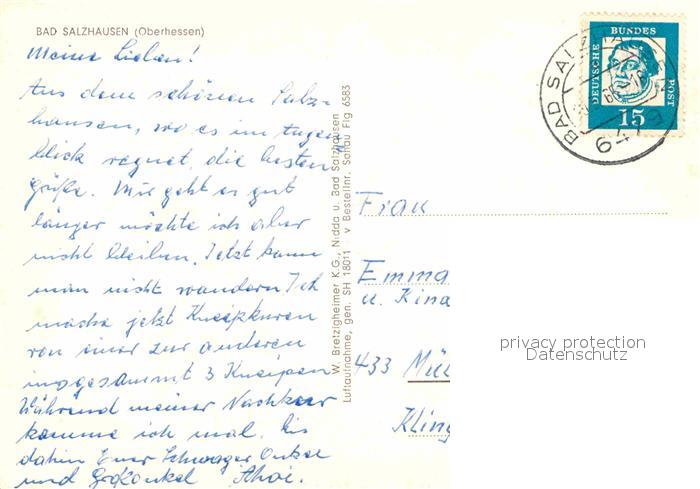 BAD SALZHAUSEN (Oberhessen)
Meine Lieben!
Aus dem schönen Salz-
hausen, wo es im Augen
blick regnet, die besten
grüße. Mir geht es gut
länger möchte ich aber
nicht bleiben. Jetzt kann
man nicht wandern. Ich
mache jetzt Kneipkuren
von einer zur anderen
insgesammt 3 Kneipen
Während meiner Nachkuur
komme ich mal. Bis
dahin Euer Schwager Onkel
und Großonkel Ahoi.
W. Bretzigheimer K.G., Nidda u. Bad Salzhausen
Luftaufnahme, gen. SH 18011 v Bestellnr. Schau Flg 6583
DEUTSCHE BUNDES POST
15
BAD SALZHAUSEN
6479
Frau
Emma
u. Kina
433 Mül
Kling
privacy protection
Datenschutz